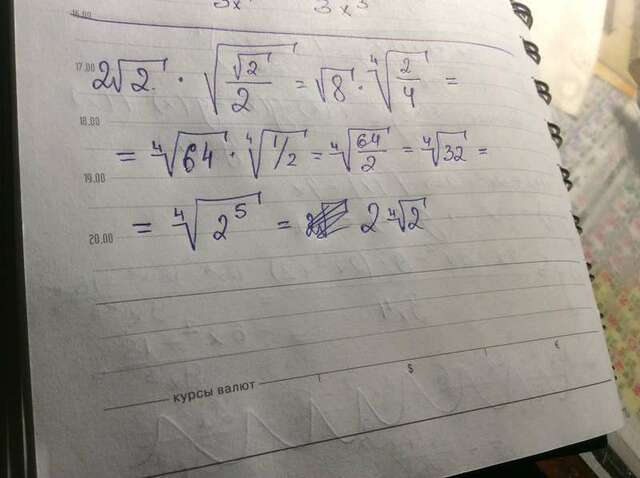 16.00 3x 3x³
17.00 2√2 · √(√2/2) = √8 · ⁴√(2/4) =
18.00
= ⁴√64 · ⁴√(1/2) = ⁴√(64/2) = ⁴√32 =
19.00
= ⁴√(2⁵) = 2 ⁴√2
20.00
курсы валют $ €